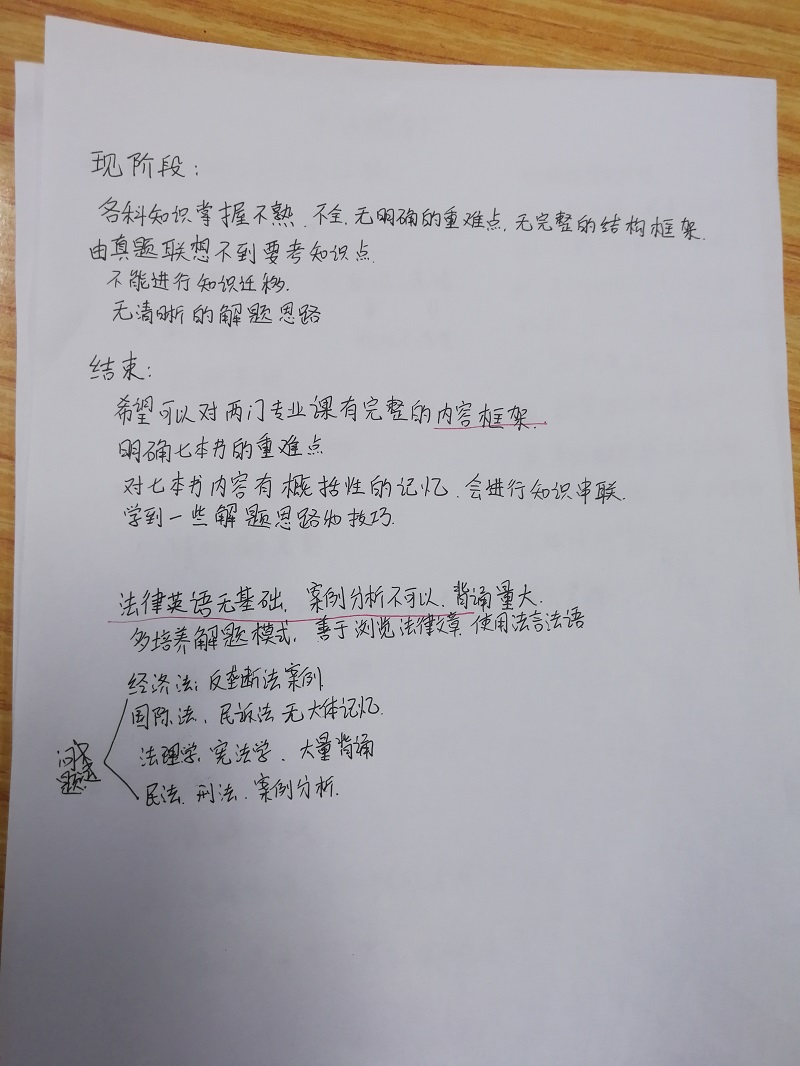 现阶段:
各科知识掌握不熟、不全,无明确的重难点,无完整的结构框架.
由真题联想不到要考知识点.
不能进行知识迁移.
无清晰的解题思路
结束:
希望可以对两门专业课有完整的内容框架.
明确七本书的重难点
对七本书内容有概括性的记忆.会进行知识串联.
学到一些解题思路和技巧.
法律英语无基础. 案例分析不可以. 背诵量大.
多培养解题模式, 善于浏览法律文章 使用法言法语
经济法: 反垄断法案例.
国际法、民诉法 无大体记忆.
法理学, 宪法学、大量背诵
民法、刑法、案例分析.
问题